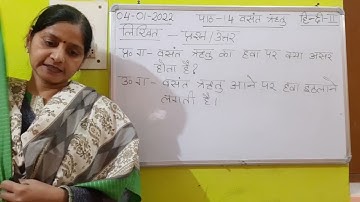 04-01-2022 पाठ-14 वसंत ऋतु हिन्दी-II
लिखित - प्रश्न/उत्तर
प्र०रा- वसंत ऋतु का हवा पर क्या असर
होता है?
उ०रा- वसंत ऋतु आने पर हवा इठलाने
लगती है।